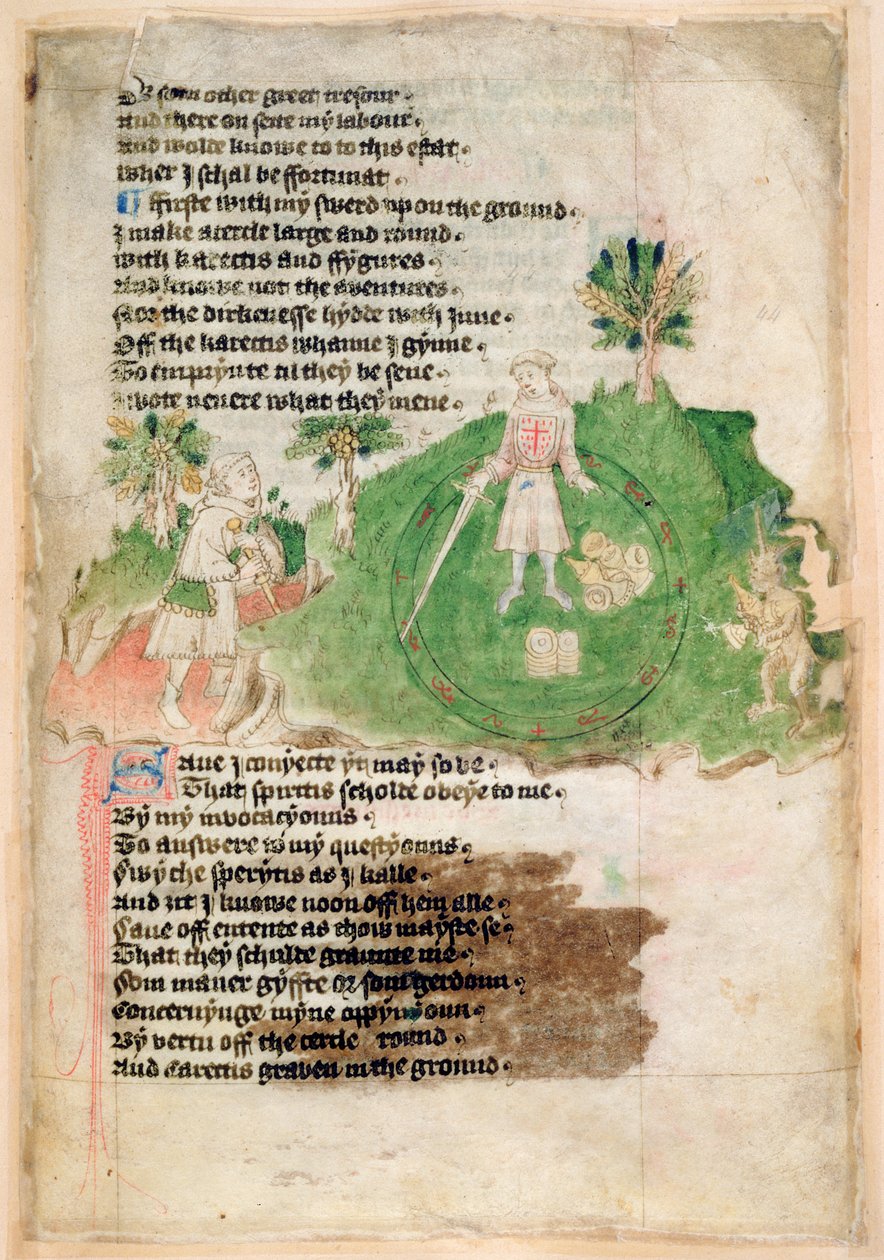 Or som other greet tresour
And there on sette my labour
And wolde knowe to to this estat
Wher I schal be ffortunat
¶ ffirste with my swerd upon the ground
I make a cercle large and round
With karectis and ffygures
And knowe not the aventures
For the dirkenesse hydde with Inne
44
Off the karectis whanne I gynne
To emprynte til they be sene
I wote nevere what they mene
Save I conyecte yt may so be
That spiritis scholde obeye to me
By my invocacyouns
To answere to my questyouns
Swyche sperytis as I kalle
And zit I knowe noon off hem alle
Save off entente as thow mayste se
That they schulde graunte me
Som maner gyffte or som gerdoun
Concernynge myne oppynyoun
By vertu off the cercle round
And Carectis graven in the ground